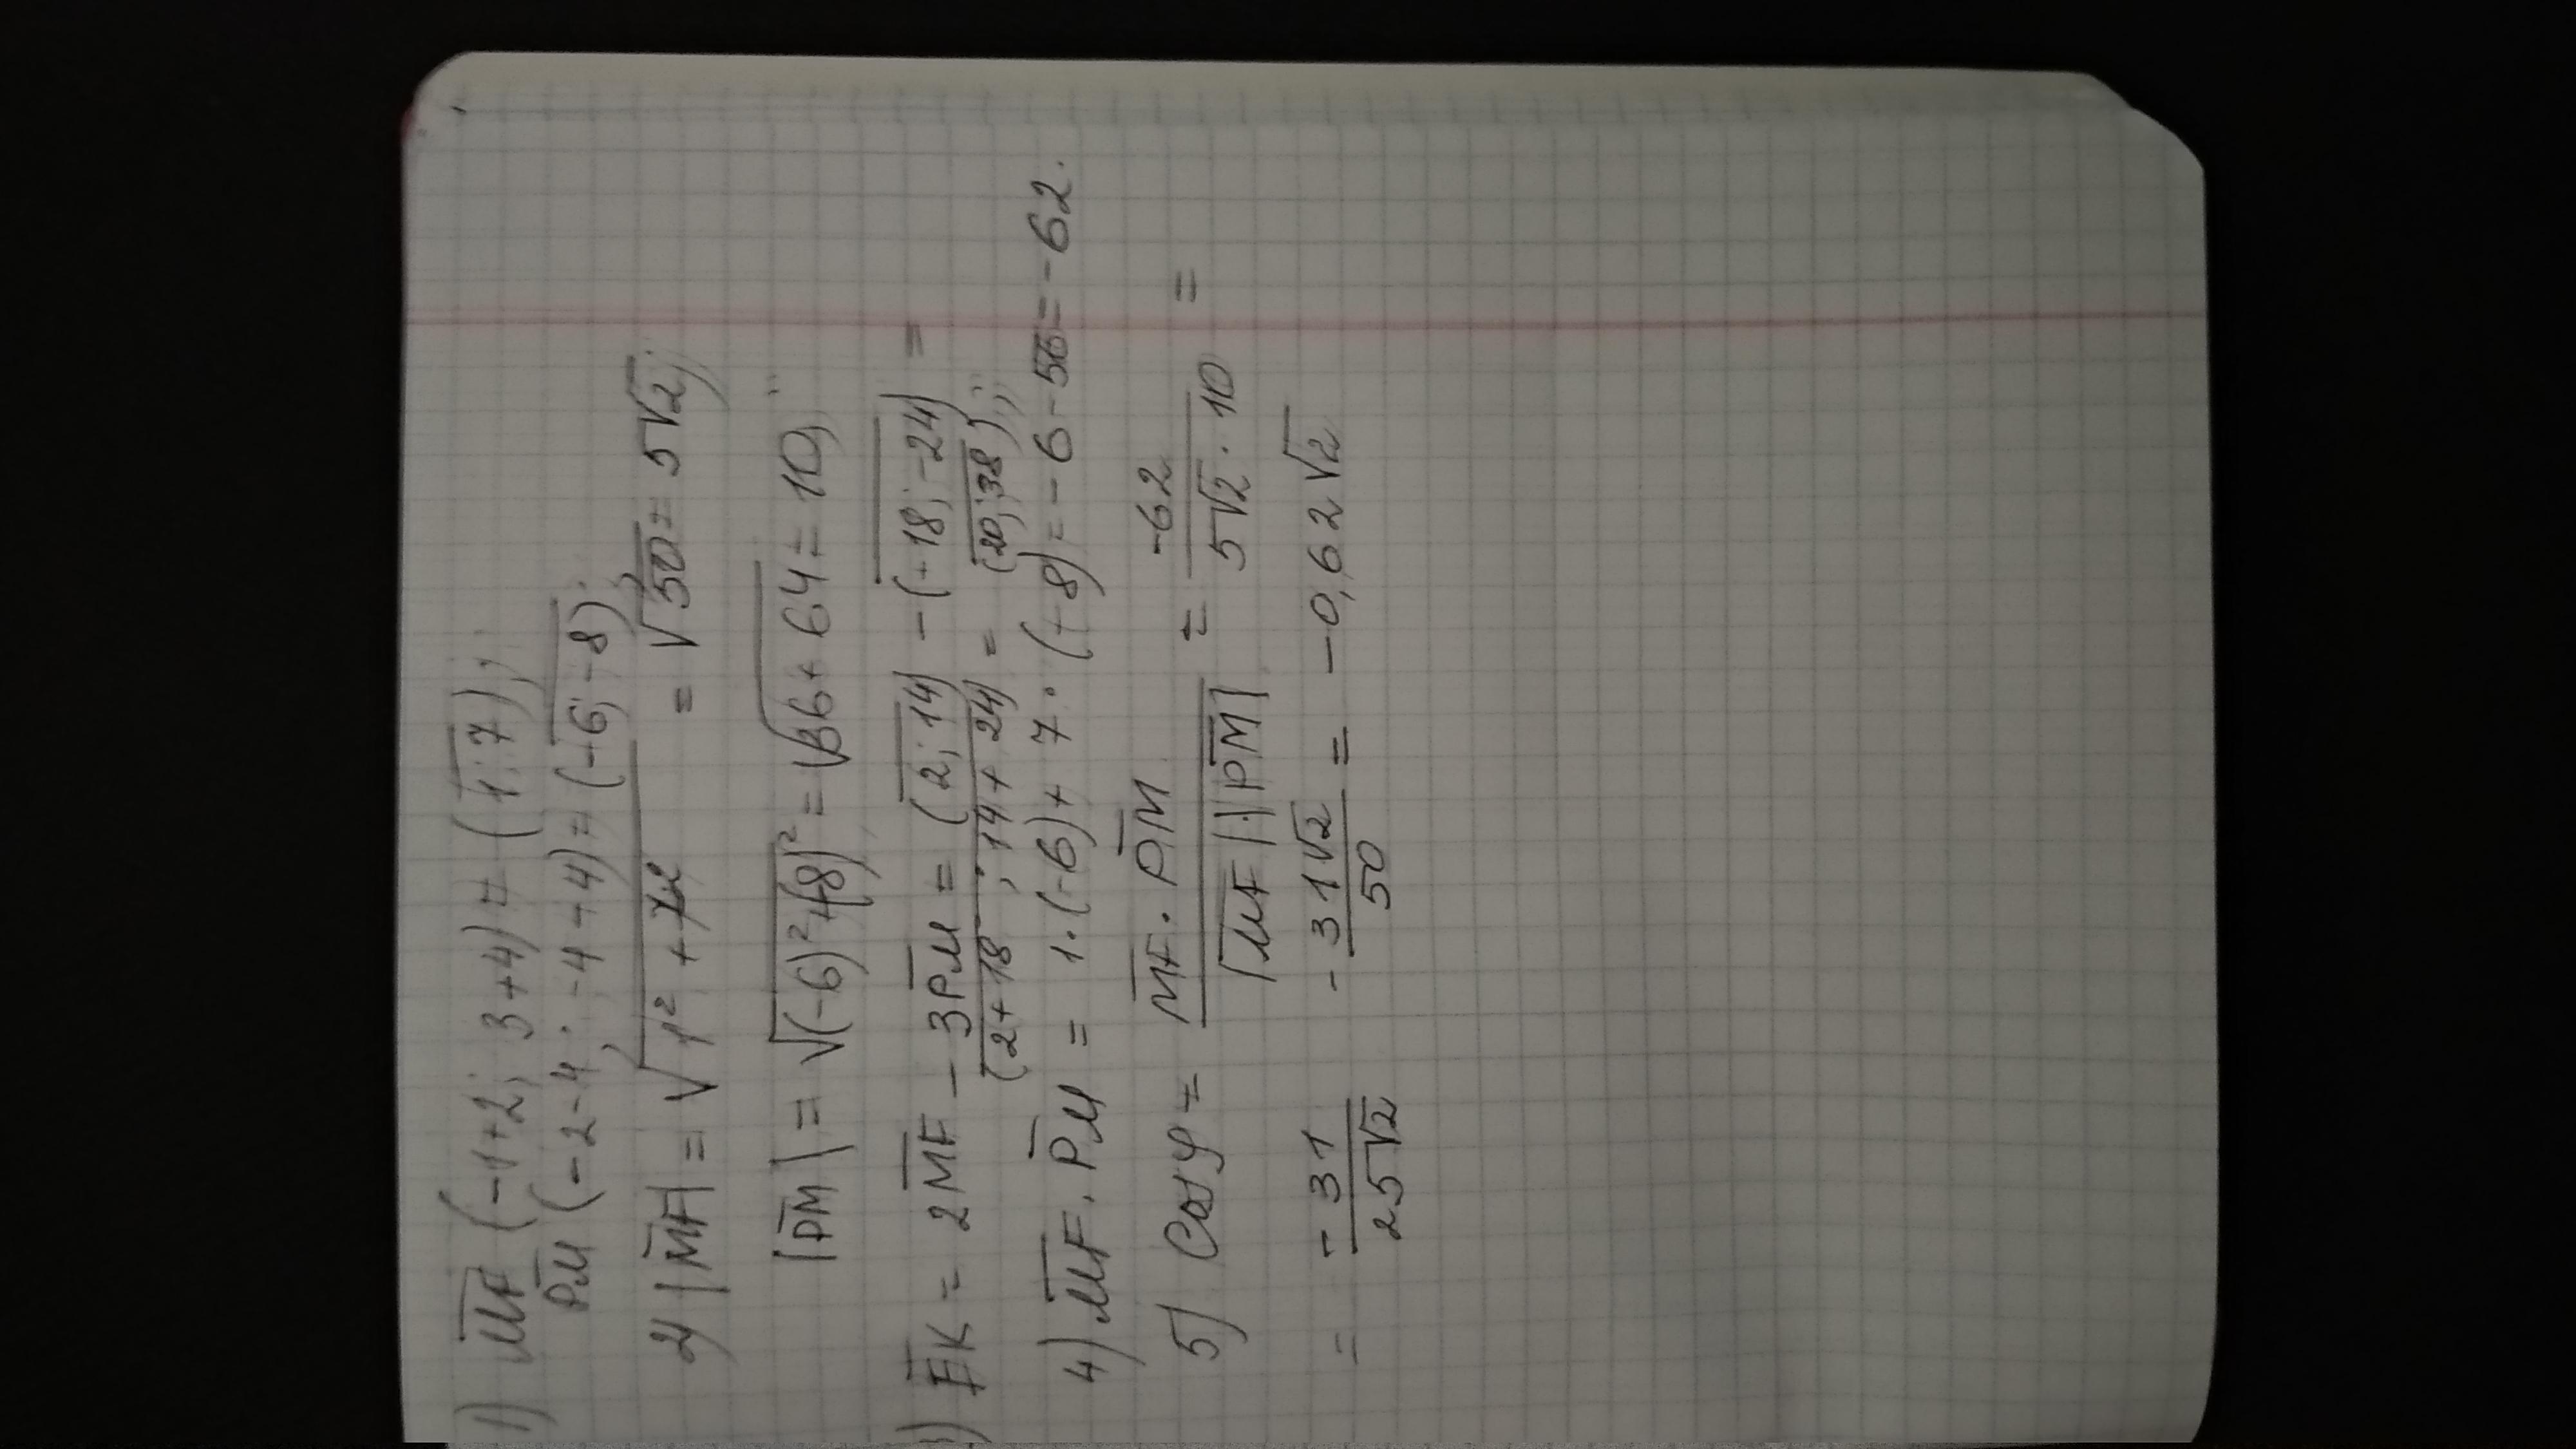 1) MF (-1+2; 3+4) = (1; 7);
PM (-2-4; -4-4) = (-6; -8).
2) |MF| = √(1² + 7²) = √50 = 5√2;
|PM| = √((-6)²+(-8)²) = √(36+64) = 10;
) EK = 2MF - 3PM = (2; 14) - (-18; -24) =
(2+18; 14+24) = (20; 38);
4) MF · PM = 1·(-6)+ 7·(-8) = -6-56 = -62.
5) Cosφ = MF · PM / |MF|·|PM| = -62 / 5√2 · 10 =
= -31 / 25√2 = -31√2 / 50 = -0,62√2